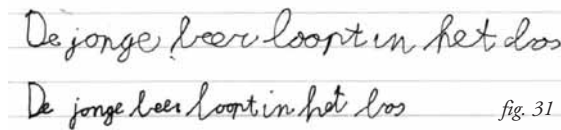 De jonge beer loopt in het bos
De jonge beer loopt in het bos fig. 31